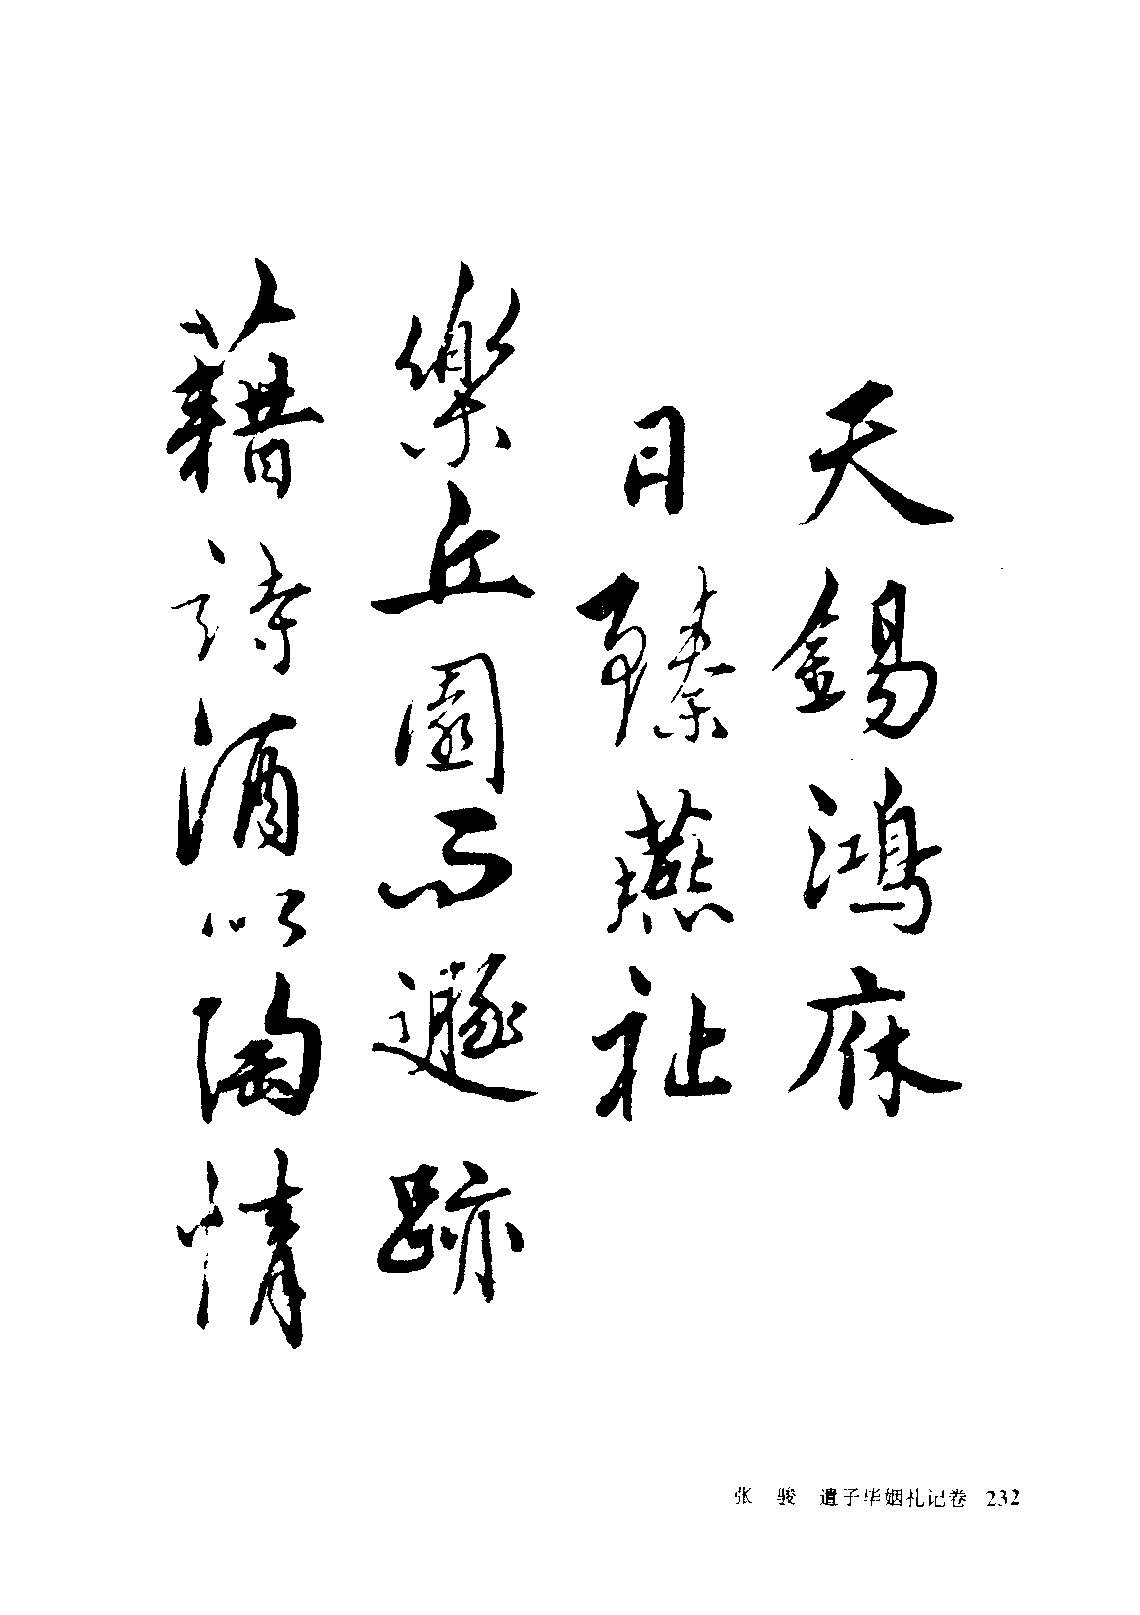 天錫鴻庥
日臻燕祉
樂丘園而遯跡
藉詩酒以陶情
张 骏 遣子毕姻札记卷 232